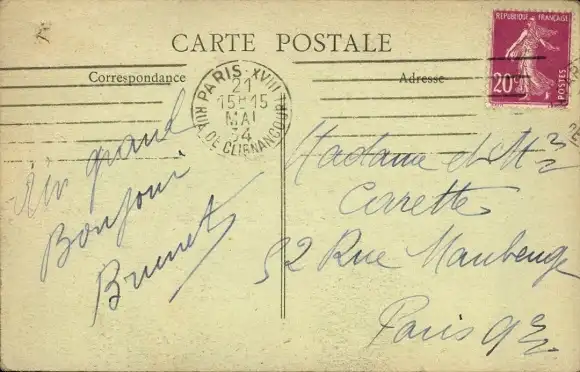 CARTE POSTALE
Correspondance
Adresse
REPUBLIQUE FRANÇAISE
20c
POSTES
PARIS XVIII
21
15H15
MAI
34
RUE DE CLIGNANCOURT
Un grand
Bonjour
Brunet
Madame et Mr
Carette
52 Rue Maubeuge
Paris 9e